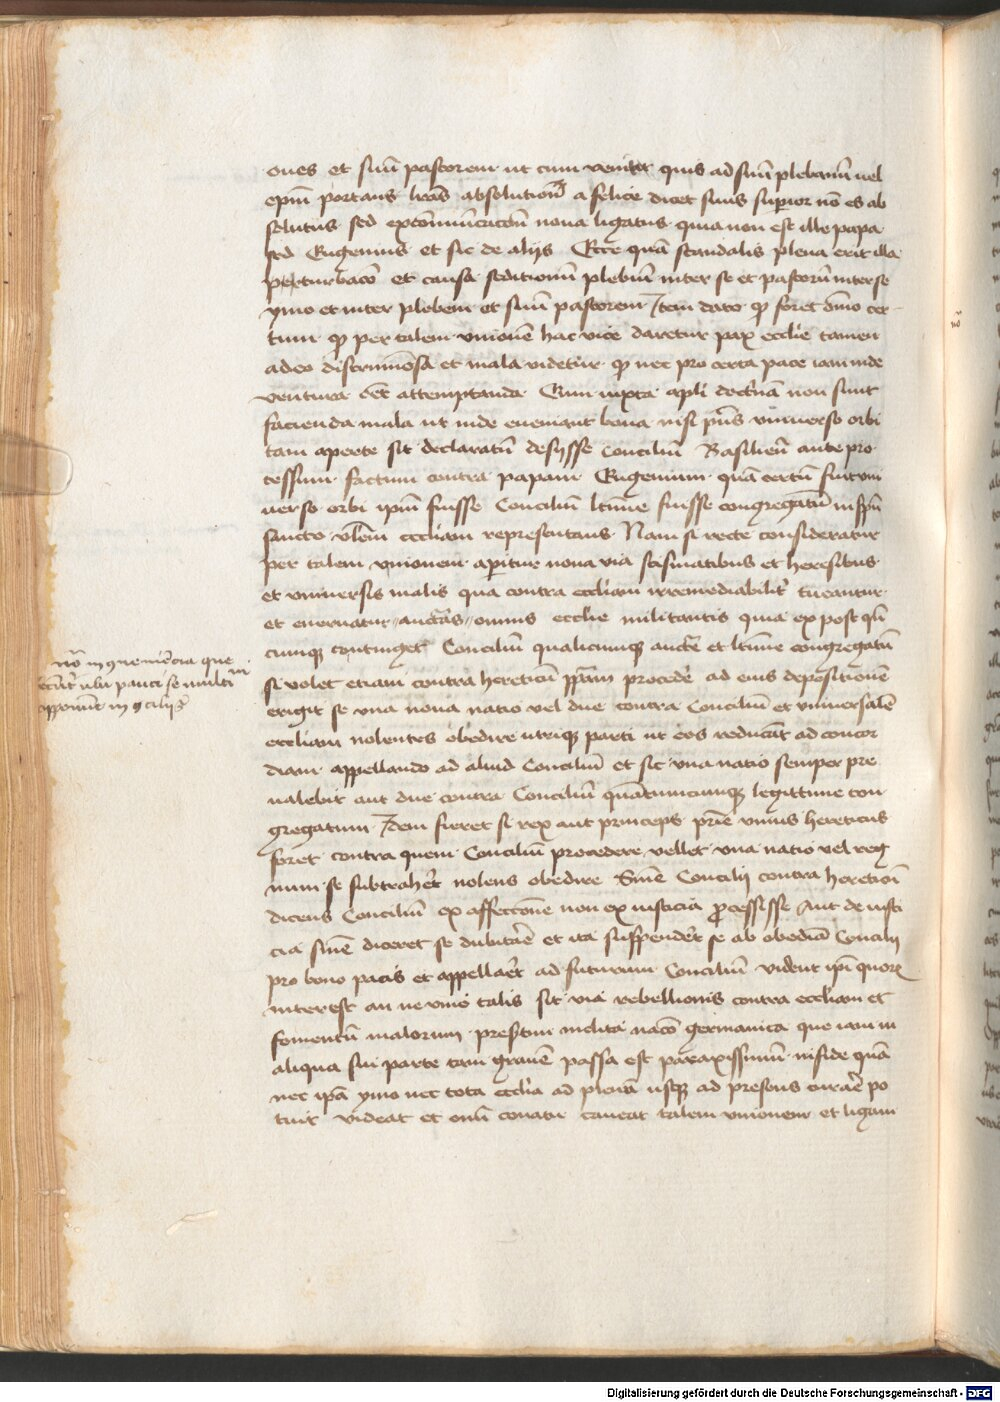 oues et suū pastorem ut cum venit quis ad suū plebanū uel
epm̄ portans lrās absolutiōis a felice dicet suus supior nō es ab
solutus sed excōmunicacōn noua ligatus quia non est ille papa
sed Eugenius et sic de alijs Ecce quā scandalis plena erit illa
perturbacō et causa seditionū plebiū inter se et pastorū inter se
ymo et inter plebem et suū pastorem Item dato qp foret dmō cer
tum qp per talem unionē hac vice daretur pax ecclie tamen
adeo discriminosa et mala videtur qp nec pro certa pace iam inde
ventura eēt attemptanda Cum iuxta apli doctrinā non sunt
facienda mala ut inde eueniant bona nisi prius uniuerso orbi
tam aperte sit declaratū desysse conciliū Basilien̄ ante pro
cessum factum contra papam Eugenium quā certū fuit uni
uerso orbi ipm̄ fuisse Conciliū ltīme fuisse congregatū in spū
sancto vlēm eccliam representans Nam si recte consideratur
per talem unionem aperitur noua via scismatibus et heresibus
et uniuersis malis qua contra eccliam irremediabilit̄ tueantur
et eneruatur auctās omnis ecclie militantis quia ex post qn̄
cumqz continget Conciliū qualitcumqz auctē et ltīme congregatū
si volet etiam contra hereticū ppam procedē ad eius depositionē
eriget se una noua natio vel due contra Conciliū et uniuersalē
eccliam nolentes obedire utriqz parti ut eos reducāt ad concor
diam appellando ad aliud Conciliū et sic una natio semper pre
ualebit aut due contra Conciliū quātumcumqz legittime con
gregatum Idem fieret si rex aut princeps prīe unius hereticus
foret contra quem Conciliū procedere vellet una natio vel reg
num se subtraheret nolens obedire Snīe Concilij contra hereticū
dicens Conciliū ex affectione non ex iusticia processisse Aut de iusti
cia snīe diceret se dubitare et ita suspenderet se ab obediā Concilij
pro bono pacis et appellaret ad futurum Conciliū videant ipi quorz
interest an ne unio talis sit via rebellionis contra eccliam et
fomentū malorum presertim inclita nacō germanica que iam in
aliqua sui parte tam grauē passa est paraxissimū nisi de quā
nec ipā ymo nec tota ecclia ad plenū usqz ad presens curare po
tuit videat et omī conatu caueat talem unionem et ligam
nō inconueniēcia que
ubi pauci se multi
opponūt in conciliis
nō
Digitalisierung gefördert durch die Deutsche Forschungsgemeinschaft - DFG